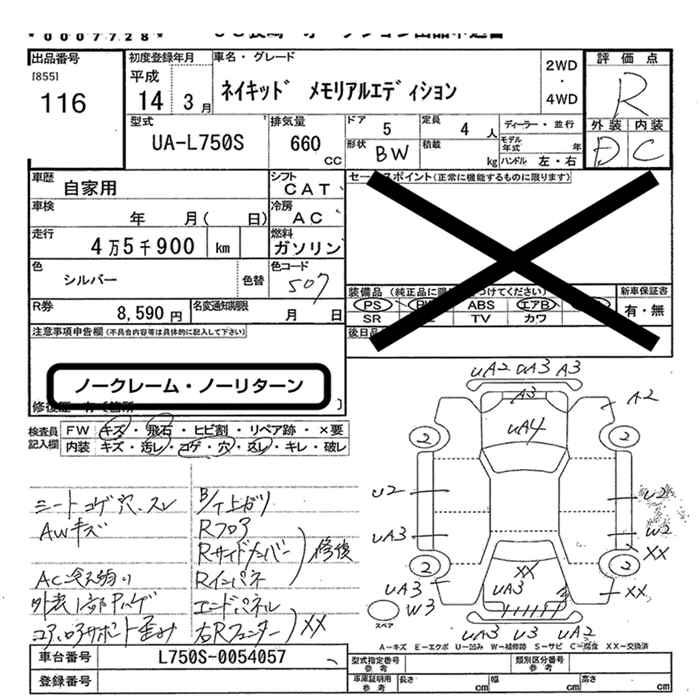 *0007728*
出品番号
[855]
116
初度登録年月
平成
14 3月
車名・グレード
ネイキッド メモリアルエディション
2WD
・
4WD
評価点
R
外装 内装
D C
型式
UA-L750S
排気量
660
CC
ドア
5
定員
4 人
ディーラー・並行
形状
BW
積載
kg
モデル年式
年
ハンドル 左・右
車歴
自家用
シフト
CAT
セールスポイント(正常に機能するものに限ります)
車検
年 月( 日)
冷房
AC
走行
4万5千900 km
燃料
ガソリン
色
シルバー
色替
色コード
507
装備品(純正品に限
つけてください)
新車保証書
PS
ABS
エアB
有・無
SR
TV
カワ
R券
8,590円
名変通知期限
月 日
後日品
注意事項申告欄(不具合内容等は具体的に記入して下さい)
ノークレーム・ノーリターン
検査員
記入欄
FW キズ・飛石・ヒビ割・リペア跡・×要
内装 キズ・汚レ・コゲ・穴・スレ・キレ・破レ
シートコゲ穴、スレ
AWキズ
外装1部Pハゲ
コアロアサポート歪み
下上ガリ
Rフロア
Rサイドメンバー
修復
Rインパネ
エンドパネル
右Rフェンダー
XX
UA2 UA3 A3
A3
A2
UA4
2 2
U2
U2
UA3
W2
XX
2 2
XX
UA3
UA3
XX
W3
スペア
UA3 U3 UA2
A−キズ E−エクボ U−凹み W−補修跡 S−サビ C−腐食 XX−交換済
車台番号
L750S-0054057
登録番号
型式指定番号
参考
類別区分番号
参考
車庫証明用
参考
長さ
cm
幅
cm
高さ
cm